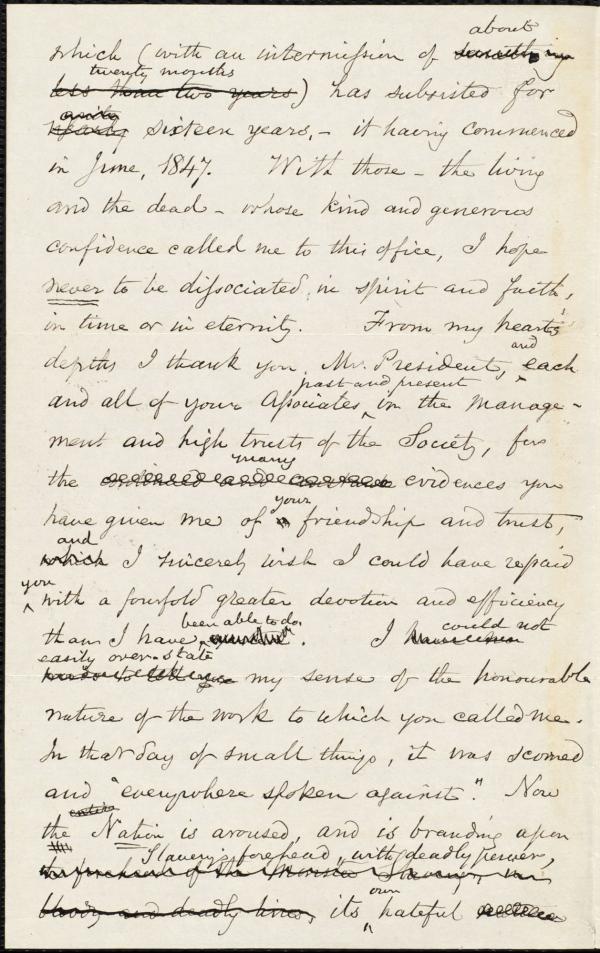 about
which (with an intermission of something
twenty months
less than two years) has subsisted for
quite
nearly sixteen years, – it having commenced
in June, 1847. With those – the living
and the dead – whose kind and generous
confidence called me to this office, I hope
never to be dissociated, in spirit and faith,
in time or in eternity. From my heart's
and
depths I thank you, Mr. President, ^ each
past and present
and all of your Associates ^ in the Manage-
ment and high trusts of the Society, for
many
the continued and evidences you
your
have given me of friendship and trust,
and
which I sincerely wish I could have repaid
you
^ with a fourfold greater devotion and efficiency
been able to do.
than I have ^ . I could not
easily over-state
my sense of the honourable
nature of the work to which you called me.
In that day of small things, it was scorned
and "everywhere spoken against." Now
entire
the Nation is aroused, and is branding upon
Slavery's forehead, with deadly power,
the forehead of the Monster Slavery, in
own
bloody and deadly lines, its ^ hateful